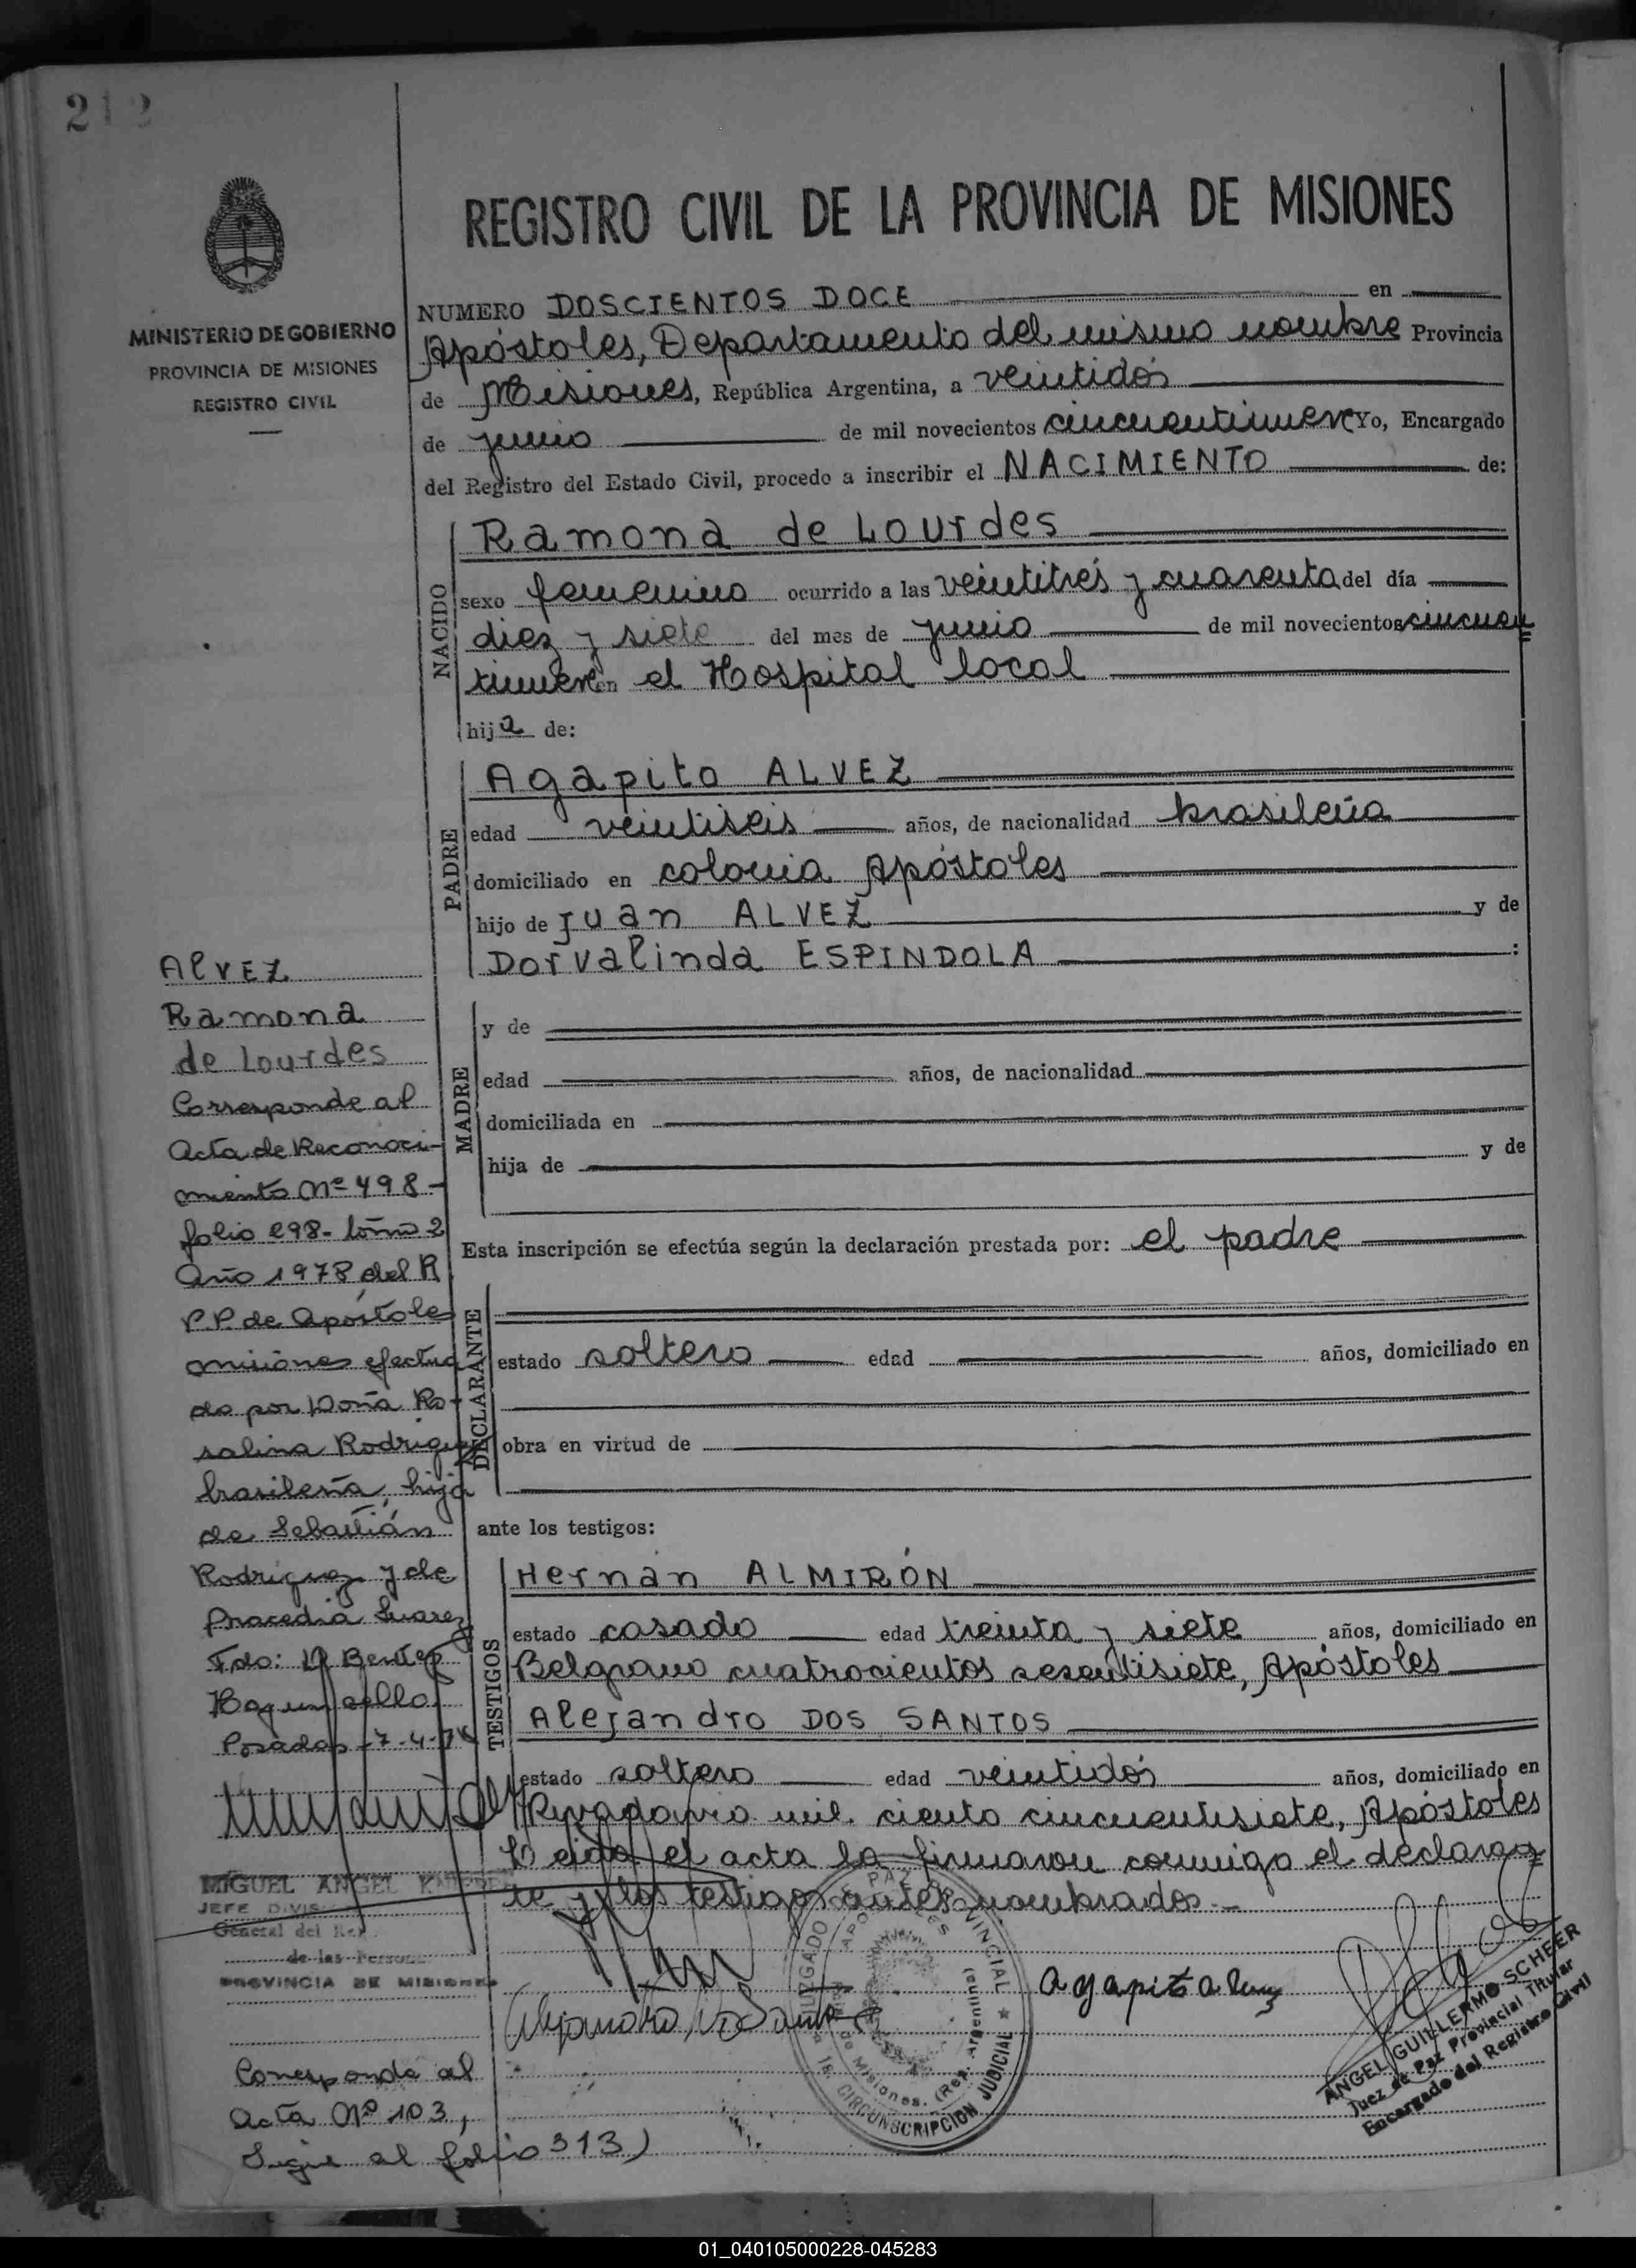 212
MINISTERIO DE GOBIERNO
PROVINCIA DE MISIONES
REGISTRO CIVIL
REGISTRO CIVIL DE LA PROVINCIA DE MISIONES
NUMERO DOSCIENTOS DOCE en
Apóstoles, Departamento del mismo nombre Provincia
de Misiones, República Argentina, a veintidós
de junio de mil novecientos cincuentinueve Yo, Encargado
del Registro del Estado Civil, procedo a inscribir el NACIMIENTO de:
NACIDO
Ramona de Lourdes
sexo femenino ocurrido a las veintitrés y cuarenta del día
diez y siete del mes de junio de mil novecientos cincuen
tinueve en el Hospital local
hija de:
PADRE
Agapito ALVEZ
edad veintiseis años, de nacionalidad brasileña
domiciliado en colonia Apóstoles
hijo de Juan ALVEZ y de
Dorvalinda ESPINDOLA :
MADRE
y de
edad años, de nacionalidad
domiciliada en
hija de y de
Esta inscripción se efectúa según la declaración prestada por: el padre
DECLARANTE
estado soltero edad años, domiciliado en
obra en virtud de
ante los testigos:
TESTIGOS
Hernán ALMIRÓN
estado casado edad treinta y siete años, domiciliado en
Belgrano cuatrocientos sesentisiete, Apóstoles
Alejandro DOS SANTOS
estado soltero edad veintidós años, domiciliado en
Rivadavia mil ciento cincuentisiete, Apóstoles
Leida el acta la firmaron conmigo el declaran
te y los testigos antes nombrados.-
Agapito Alvez
Alejandro Do Santo
JUZGADO DE PAZ PROVINCIAL ★
APOSTOLES
Misiones. (Rep. Argentina)
CIRCUNSCRIPCION JUDICIAL
ANGEL GUILLERMO SCHEER
Juez de Paz Provincial Titular
Encargado del Registro Civil
ALVEZ
Ramona
de Lourdes
Corresponde al
Acta de Reconoci-
miento Nº 498-
folio 298- tomo 2
Año 1978 del R
P.P. de Apóstoles
Misiones efectua
do por Doña Ro-
salina Rodriguez
brasileña, hija
de Sebastián
Rodriguez y de
Pracedia Suarez
Fdo: Benitez
Hay un sello
Posadas -7-4-
MIGUEL ANGEL
JEFE DIVIS
General del Reg
de las Personas
PROVINCIA DE MISIONES
Corresponde al
Acta Nº 103,
Sigue al folio 313)
01_040105000228-045283